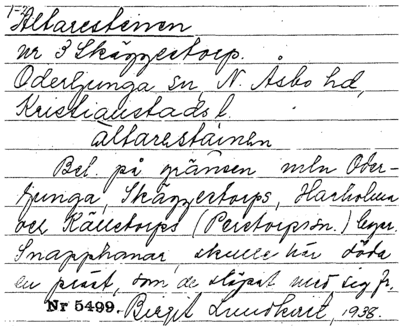 1-2
Altarestenen
nr 3 Skäggestorp.
Oderljunga sn, N. Åsbo hd,
Kristianstads l.
altarestäinen
Bel. på gränsen mln Oder-
ljunga, Skäggestorps, Harholma
och Källetorps (Perstorpssn.) ligger.
Snapphanar, skulle här döda
en präst, som de släpat med sig fr.
Nr 5499. Birgit Lundkvist, 1938.